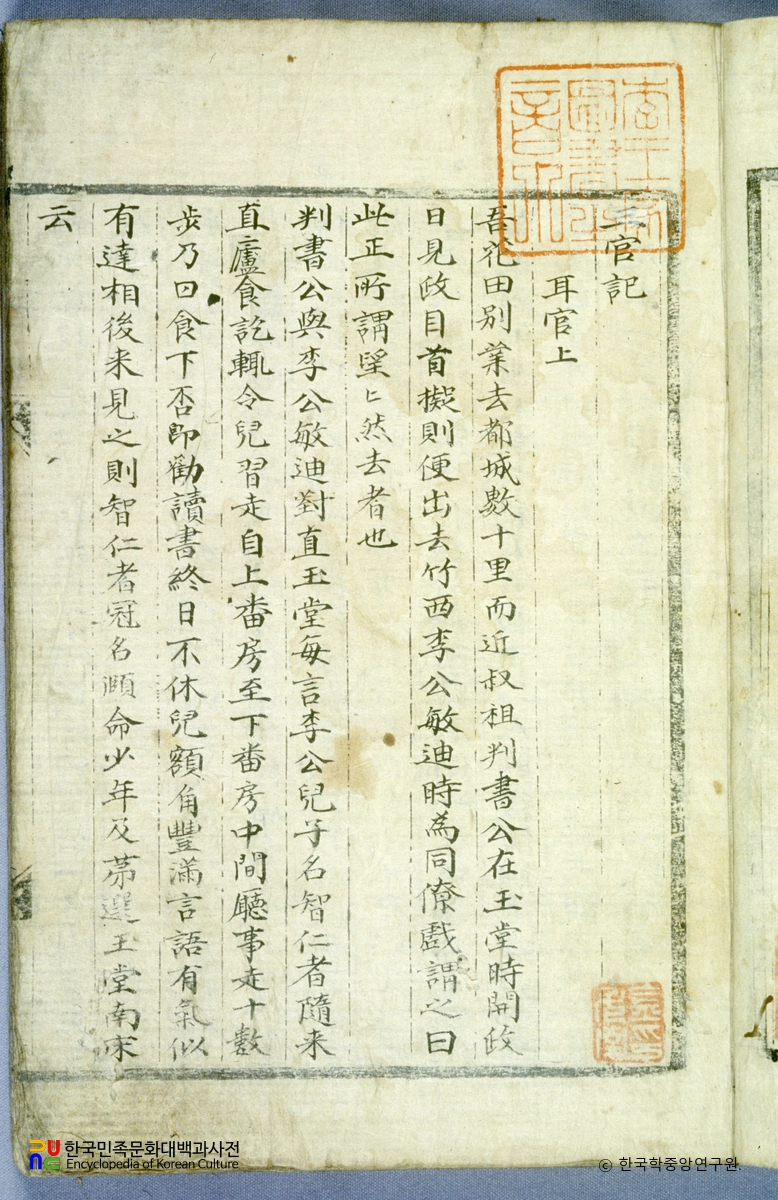 三官記
耳官上
吾花田別業去都城數十里而近叔祖判書公在玉堂時開政
日見政目首擬則便出去竹西李公敏迪時為同僚戲謂之曰
此正所謂望〻然去者也
判書公與李公敏迪對直玉堂每言李公兒子名智仁者隨来
直廬食訖輒令兒習走自上番房至下番房中間廳事走十數
步乃曰食下否即勸讀書終日不休兒額角豐滿言語有氣似
有達相後来見之則智仁者冠名頤命少年及第選玉堂南床
云
한국민족문화대백과사전
Encyclopedia of Korean Culture
© 한국학중앙연구원